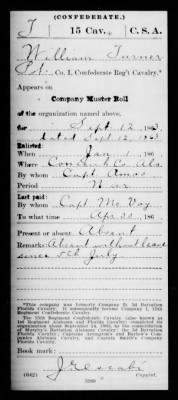 (CONFEDERATE.)
T 15 Cav. C. S. A.
William Turner
Co. I, Confederate Reg't Cavalry.*
Appears on
Company Muster Roll
of the organization named above,
for Sept 12, 1863.
dated Sept 12, 1863
Enlisted:
When Jan 1, 186
Where Conecuh Co. Ala.
By whom Capt Amos
Period War
Last paid:
By whom Capt. McVoy
To what time Apr. 30, 186
Present or absent Absent
Remarks: Absent without leave
since 5th July
*This company was formerly Company
Florida Cavalry. It subsequently became Company I, 15th
Regiment Confederate Cavalry.
The 15th Regiment Confederate Cavalry (also known as
1st Regiment Alabama and Florida Cavalry)
organized about September 1863, by the consolidation
of Murphy's Battalion Alabama Cavalry; the 3d Battalion
Florida Cavalry; Captains Barlow's and Arrington's Companies
Alabama Cavalry, and Captain Smith's Company
Florida Cavalry.
Book mark:
(642)
Copyist.